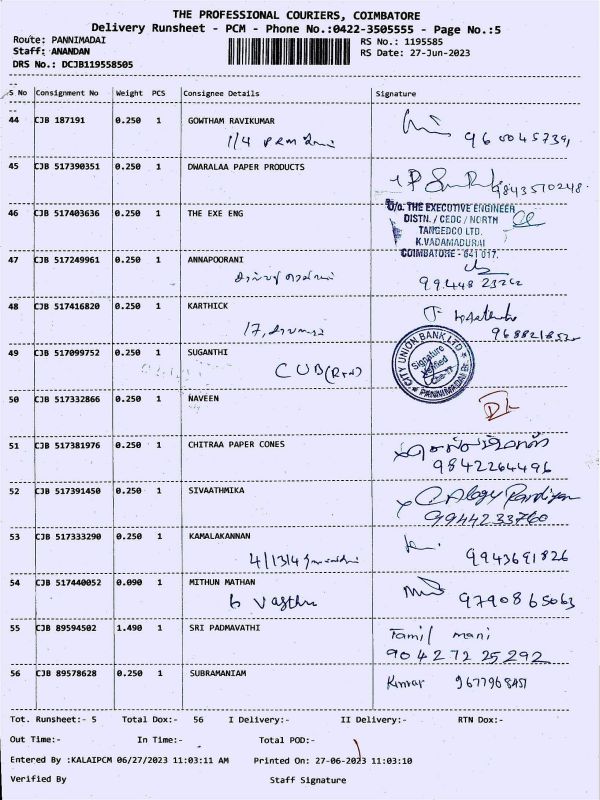 THE PROFESSIONAL COURIERS, COIMBATORE
Delivery Runsheet - PCM - Phone No.:0422-3505555 - Page No.:5
Route: PANNIMADAI RS No.: 1195585
Staff: ANANDAN RS Date: 27-Jun-2023
DRS No.: DCJB119558505
S No Consignment No Weight PCS Consignee Details Signature
44 CJB 187191 0.250 1 GOWTHAM RAVIKUMAR
1/4
45 CJB 517390351 0.250 1 DWARALAA PAPER PRODUCTS
9843570248
46 CJB 517403636 0.250 1 THE EXE ENG
O/o. THE EXECUTIVE ENGINEER
DISTN. / CEDC / NORTH
TANGEDCO LTD.
K.VADAMADURAI
COIMBATORE - 641 017.
47 CJB 517249961 0.250 1 ANNAPOORANI
48 CJB 517416820 0.250 1 KARTHICK
17,
49 CJB 517099752 0.250 1 SUGANTHI
CUB (RTN)
CITY UNION BANK LTD
Signature
Verified
PANNIMADAI
50 CJB 517332866 0.250 1 NAVEEN
51 CJB 517381976 0.250 1 CHITRAA PAPER CONES
9842264496
52 CJB 517391450 0.250 1 SIVAATHMIKA
9944233760
53 CJB 517333290 0.250 1 KAMALAKANNAN
4/1314 9943691826
54 CJB 517440052 0.090 1 MITHUN MATHAN
6 Vasthu 9790865063
55 CJB 89594502 1.490 1 SRI PADMAVATHI
Tamil mani
9042725292
56 CJB 89578628 0.250 1 SUBRAMANIAM
Kumar
Tot. Runsheet:- 5 Total Dox:- 56 I Delivery:- II Delivery:- RTN Dox:-
Out Time:- In Time:- Total POD:-
Entered By :KALAIPCM 06/27/2023 11:03:11 AM Printed On: 27-06-2023 11:03:10
Verified By Staff Signature